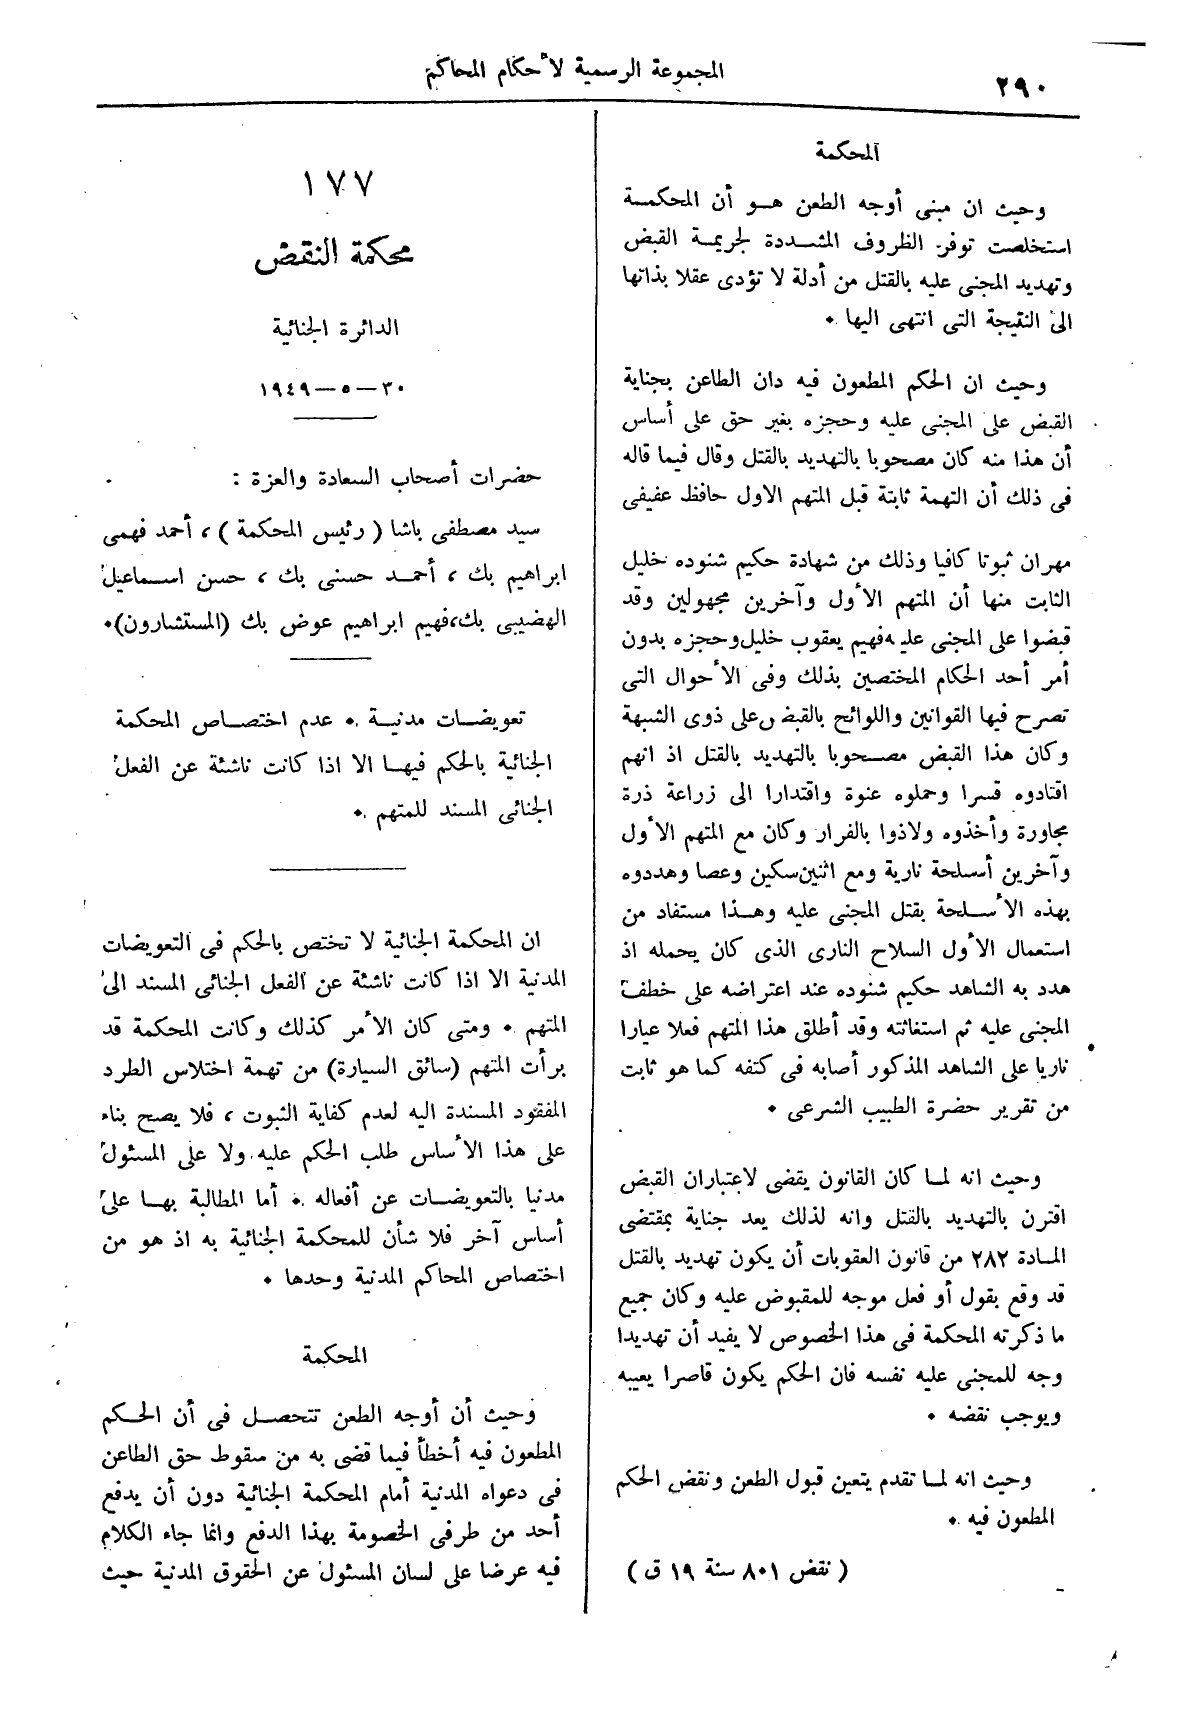 ٢٩٠
المجموعة الرسمية لأحكام المحاكم
المحكمة
وحيث ان مبنى أوجه الطعن هو أن المحكمة
استخلصت توفر الظروف المشددة لجريمة القبض
وتهديد المجنى عليه بالقتل من أدلة لا تؤدى عقلا بذاتها
الى النتيجة التى انتهى اليها .
وحيث ان الحكم المطعون فيه دان الطاعن بجناية
القبض على المجنى عليه وحجزه بغير حق على أساس
أن هذا منه كان مصحوبا بالتهديد بالقتل وقال فيما قاله
فى ذلك أن التهمة ثابتة قبل المتهم الاول حافظ عفيفى
مهران ثبوتا كافيا وذلك من شهادة حكيم شنوده خليل
الثابت منها أن المتهم الأول وآخرين مجهولين وقد
قبضوا على المجنى عليه فهيم يعقوب خليل وحجزه بدون
أمر أحد الحكام المختصين بذلك وفى الأحوال التى
تصرح فيها القوانين واللوائح بالقبض على ذوى الشبهة
وكان هذا القبض مصحوبا بالتهديد بالقتل اذ انهم
اقتادوه قسرا وحملوه عنوة واقتدارا الى زراعة ذرة
مجاورة وأخذوه ولاذوا بالفرار وكان مع المتهم الأول
وآخرين أسلحة نارية ومع اثنين سكين وعصا وهددوه
بهذه الأسلحة بقتل المجنى عليه وهذا مستفاد من
استعمال الأول السلاح النارى الذى كان يحمله اذ
هدد به الشاهد حكيم شنوده عند اعتراضه على خطف
المجنى عليه ثم استغاثته وقد أطلق هذا المتهم فعلا عيارا
ناريا على الشاهد المذكور أصابه فى كتفه كما هو ثابت
من تقرير حضرة الطبيب الشرعى .
وحيث انه لما كان القانون يقضى لاعتباران القبض
اقترن بالتهديد بالقتل وانه لذلك يعد جناية بمقتضى
المادة ٢٨٢ من قانون العقوبات أن يكون تهديد بالقتل
قد وقع بقول أو فعل موجه للمقبوض عليه وكان جميع
ما ذكرته المحكمة فى هذا الخصوص لا يفيد أن تهديدا
وجه للمجنى عليه نفسه فان الحكم يكون قاصرا يعيبه
ويوجب نقضه .
وحيث انه لما تقدم يتعين قبول الطعن ونقض الحكم
المطعون فيه .
( نقض ٨٠١ سنة ١٩ ق )
١٧٧
محكمة النقض
الدائرة الجنائية
٣٠ — ٥ — ١٩٤٩
حضرات أصحاب السعادة والعزة :
سيد مصطفى باشا ( رئيس المحكمة ) ، أحمد فهمى
ابراهيم بك ، أحمد حسنى بك ، حسن اسماعيل
الهضيبى بك، فهيم ابراهيم عوض بك (المستشارون).
تعويضات مدنية . عدم اختصاص المحكمة
الجنائية بالحكم فيها الا اذا كانت ناشئة عن الفعل
الجنائى المسند للمتهم .
ان المحكمة الجنائية لا تختص بالحكم فى التعويضات
المدنية الا اذا كانت ناشئة عن الفعل الجنائى المسند الى
المتهم . ومتى كان الأمر كذلك وكانت المحكمة قد
برأت المتهم (سائق السيارة) من تهمة اختلاس الطرد
المفقود المسندة اليه لعدم كفاية الثبوت ، فلا يصح بناء
على هذا الأساس طلب الحكم عليه ولا على المسئول
مدنيا بالتعويضات عن أفعاله . أما المطالبة بها على
أساس آخر فلا شأن للمحكمة الجنائية به اذ هو من
اختصاص المحاكم المدنية وحدها .
المحكمة
وحيث أن أوجه الطعن تتحصل فى أن الحكم
المطعون فيه أخطأ فيما قضى به من سقوط حق الطاعن
فى دعواه المدنية أمام المحكمة الجنائية دون أن يدفع
أحد من طرفى الخصومة بهذا الدفع وانما جاء الكلام
فيه عرضا على لسان المسئول عن الحقوق المدنية حيث